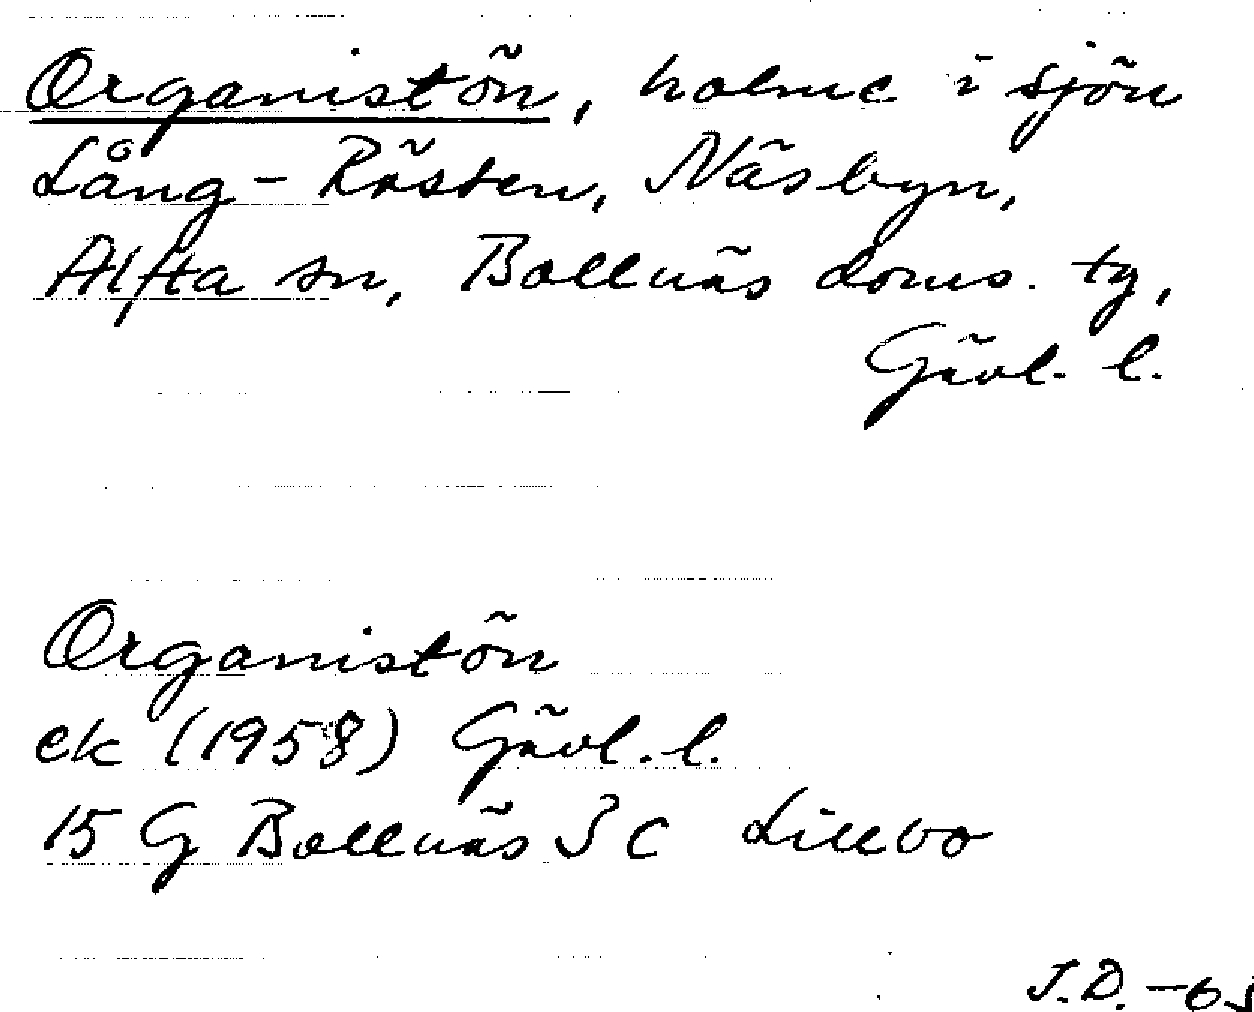 Organistön, holme i sjön
Lång-Rösten, Näsbyn,
Alfta sn, Bollnäs doms. tg,
Gävl. l.
Organistön
ek (1958) Gävl. l.
15 G Bollnäs SC Lillbo
J.D. -65